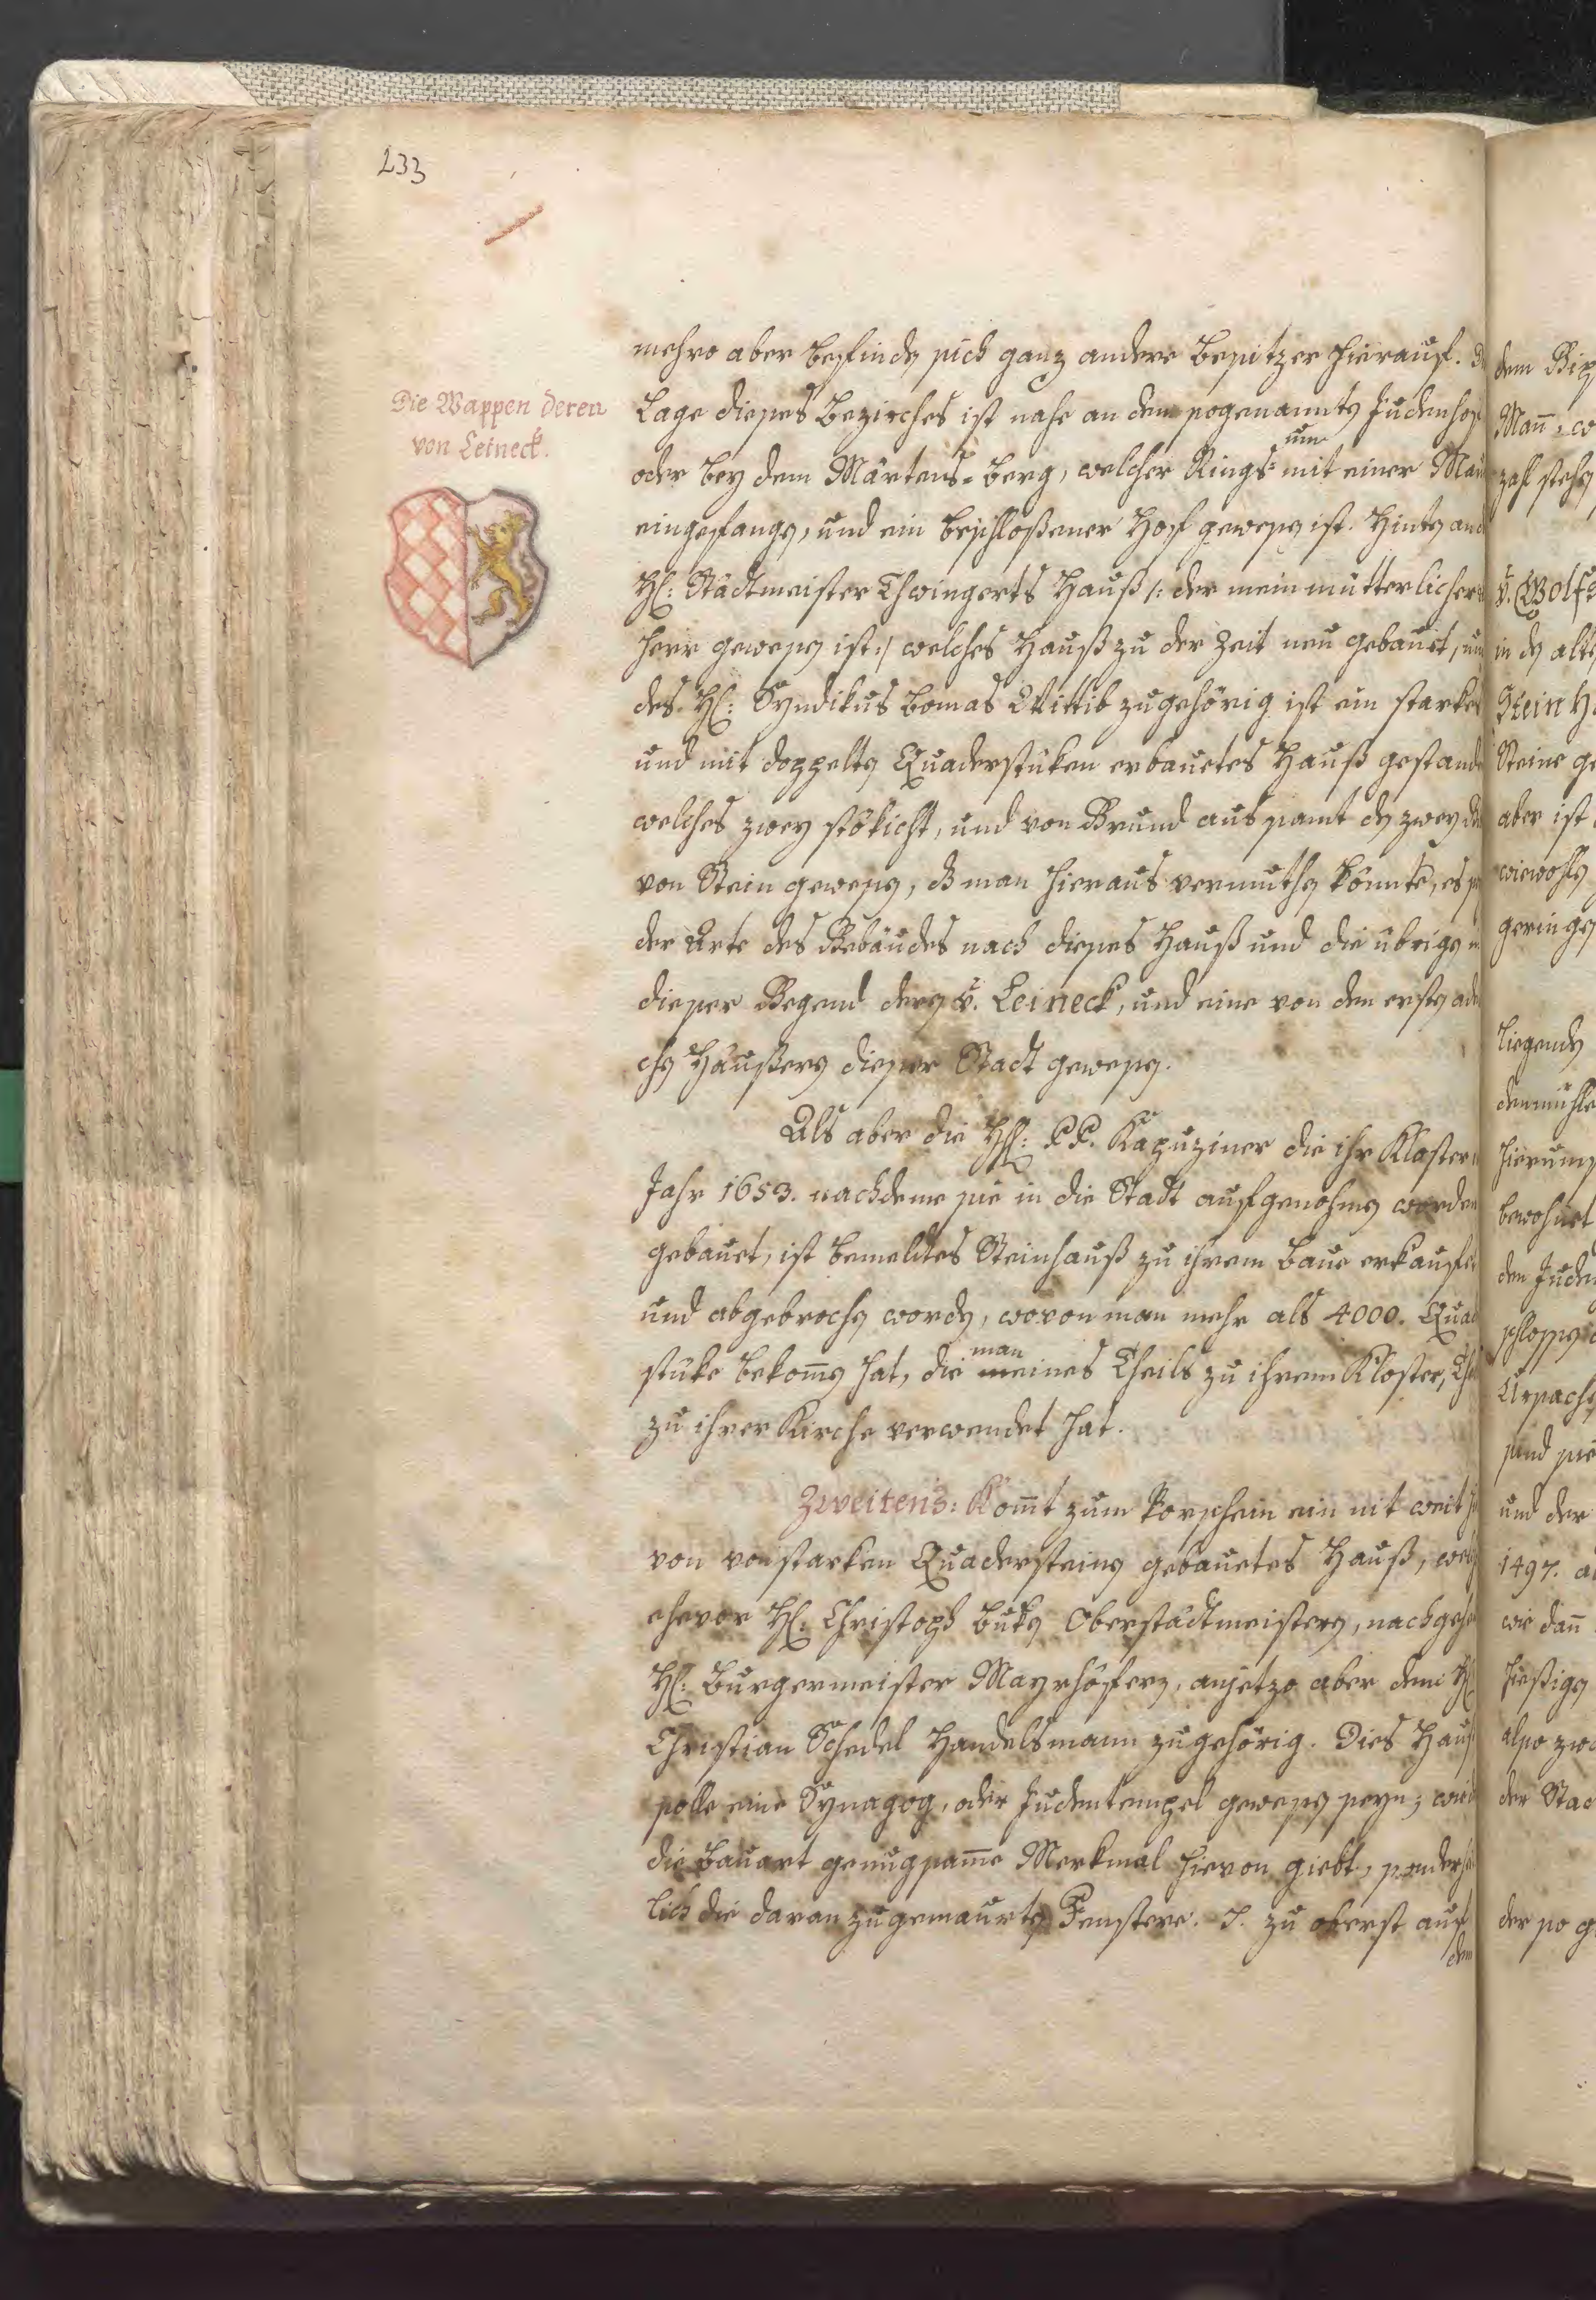 233
Die Wappen deren
von Leineck.
mehro aber befinden sich ganz andere Besitzer hierauf.
Lage dieses Bezirches ist nahe an dem sogenannten Judenhof
oder bey dem Märtens-Berg, welcher Rings- um mit einer
eingefangen, und ein beschloßener Hof gewesen ist. Hinten
H: Stadtmeister Thwingerts Hauß /: der mein mutterlicher
Herr gewesen ist :/ welches Hauß zu der Zeit neu gebauet,
des H: Syndikus Bomas Wittib zugehörig ist ein starkes
und mit doppelten Quaderstuken erbauetes Hauß gestanden
welches zwey stökicht, und von Grund aus samt den zwey
von Stein gewesen, dß man hieraus vermuthen könnte, es
der Arte des Gebäudes nach dieses Hauß und die ubrigen
dieser Gegend deren v. Leineck, und eine von den ersten
chen Häußern dieser Stadt gewesen.
Als aber die HH: P.P. Kapuziner die ihr Kloster
Jahr 1653. nachdeme sie in die Stadt aufgenohmen worden
gebauet, ist bemeldtes Steinhauß zu ihrem Baue erkaufet
und abgebrochen worden, wovon man mehr als 4000. Quad
stuke bekom̄en hat, die man eines Theils zu ihrem Kloster,
zu ihrer Kirche verwendet hat.
Zweitens: Kom̄t zum Vorschein ein nit weit
von von starken Quadersteinen gebauetes Hauß,
ehevor H: Christoph Buken Oberstadtmeistern,
H: Burgermeister Mayrhöfern, anjetzo aber dem H:
Christian Schedel Handelsmann zugehörig. Dies Hauß
solle eine Synagog, oder Judentempel gewesen seyn;
die Bauart genugsam̄e Merkmal hievon giebt,
lich die daran zugemaurten Fenstere. J. zu oberst auf
dem
dem
Man̄
zahl stehen
v. Wolfs
in den alte
Stein
Steine
aber ist
wiewohlen
geringen
liegenden
bewohnet
den Juden
Ursachen
sind sie
und der
1497.
wie dan̄
hießigen
also
der
der so